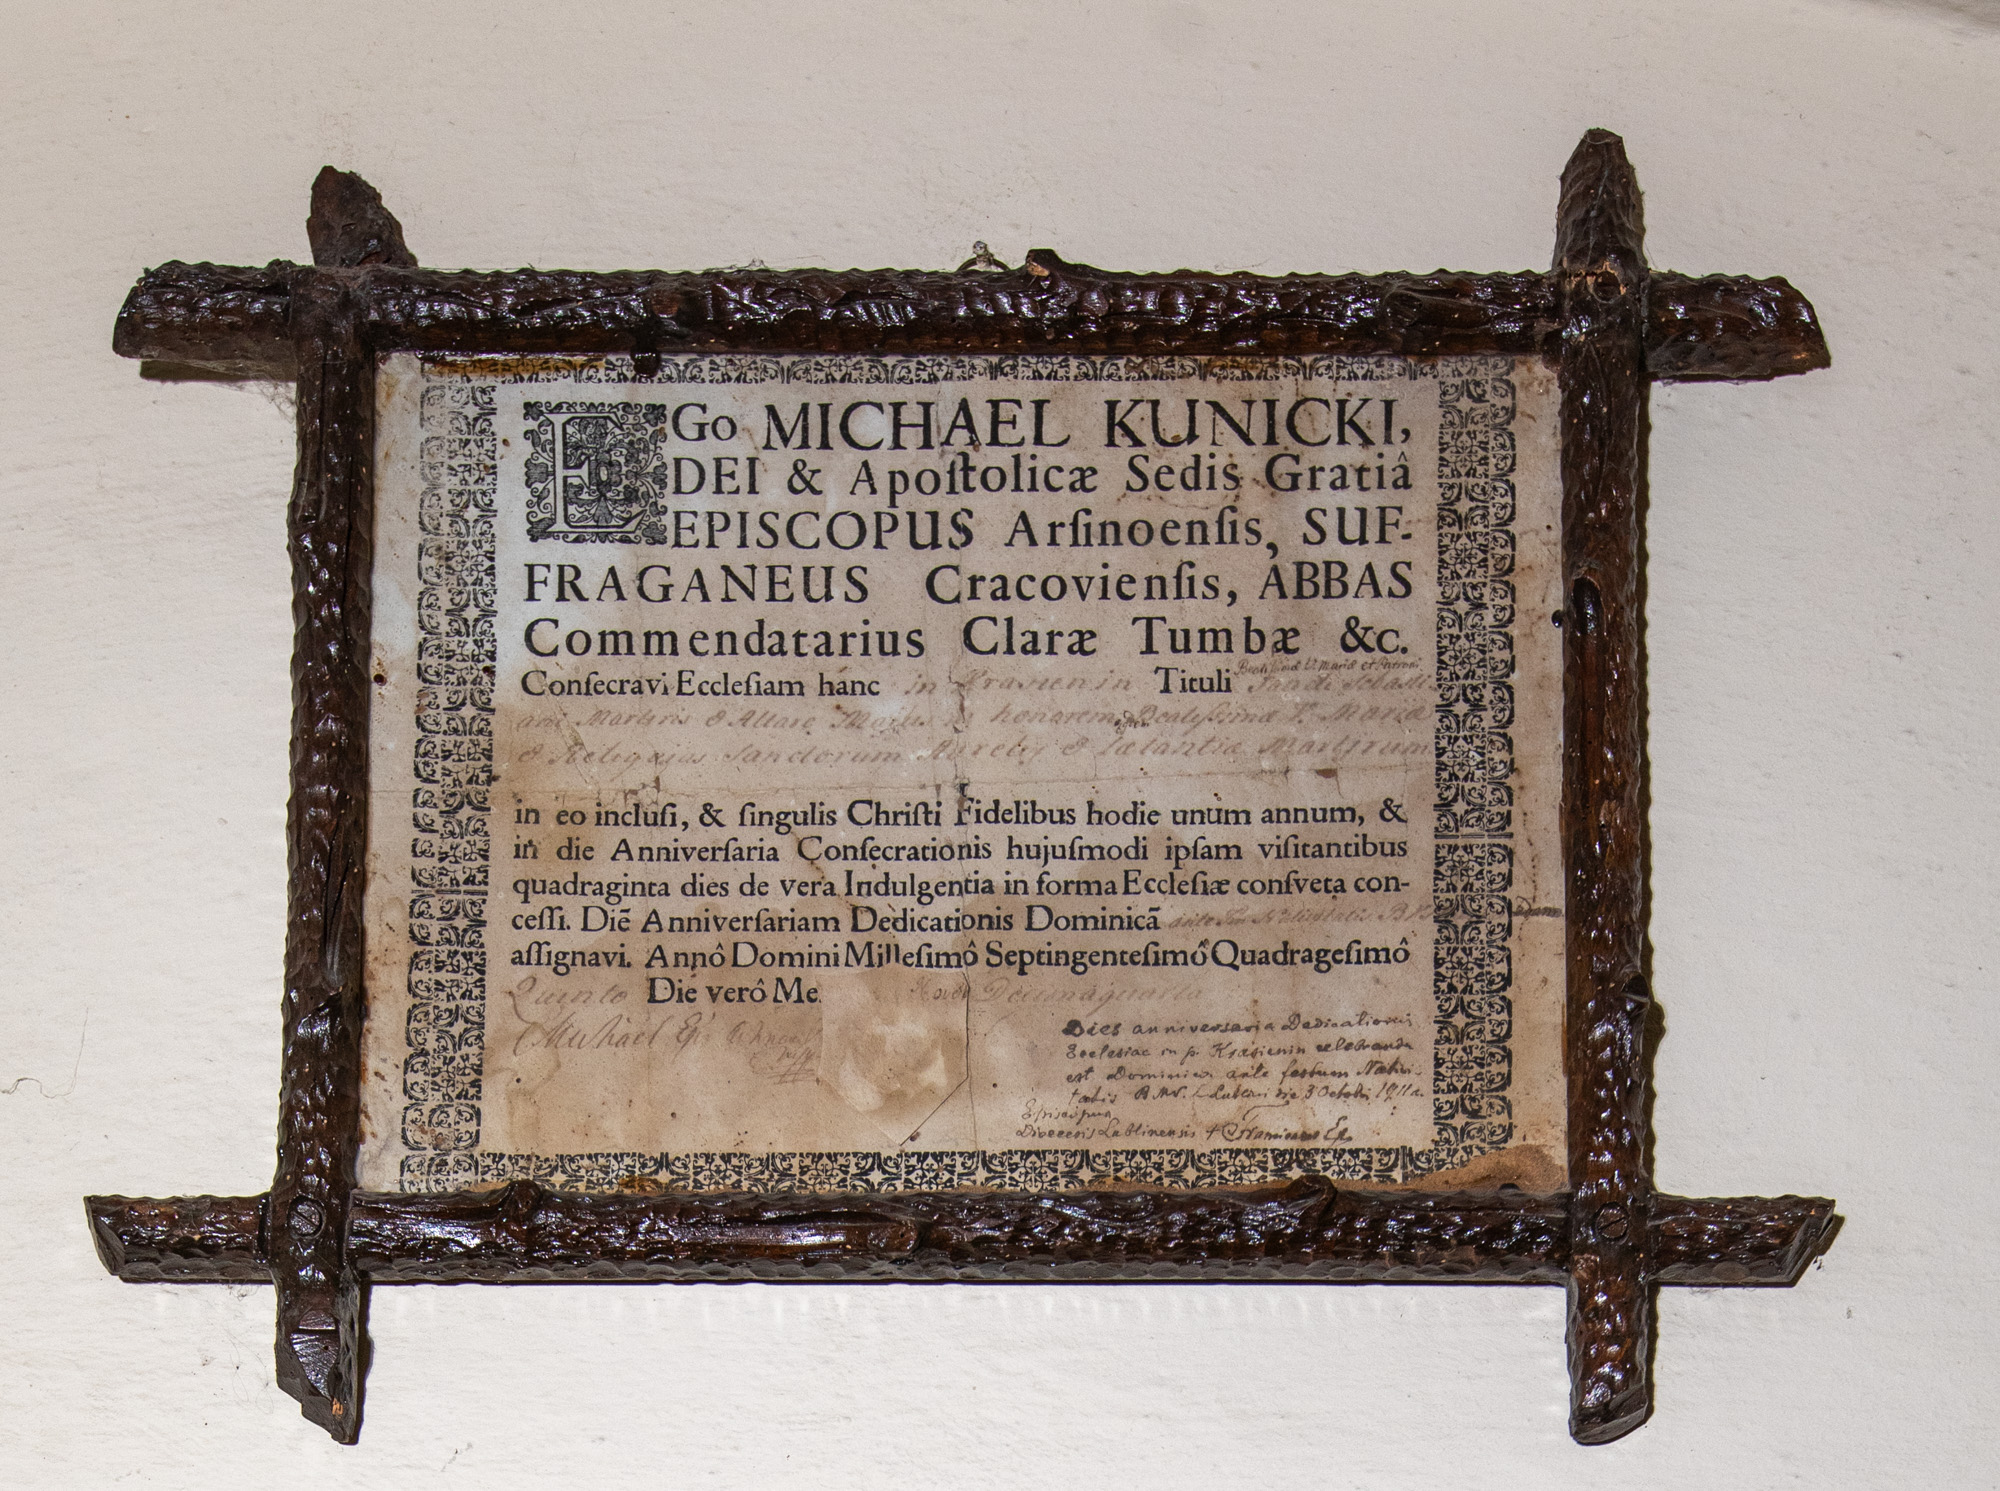 EGo MICHAEL KUNICKI,
DEI & Apoſtolicæ Sedis Gratiâ
EPISCOPUS Arſinoenſis, SUF-
FRAGANEUS Cracovienſis, ABBAS
Commendatarius Claræ Tumbæ &c.
Conſecravi Eccleſiam hanc in Tituli Sancti Sebasti
ani Martyris & Altare Majus in honorem Beatissimæ V. Mariæ
& Reliquias Sanctorum Aurelij & Lætantiæ Martirum
in eo incluſi, & ſingulis Chriſti Fidelibus hodie unum annum, &
in die Anniverſaria Conſecrationis hujuſmodi ipſam viſitantibus
quadraginta dies de vera Indulgentia in forma Eccleſiæ conſveta con-
ceſſi. Diẽ Anniverſariam Dedicationis Dominicã
aſſignavi. Annô Domini Milleſimô Septingenteſimô Quadrageſimô
Quinto Die verô Me Decimaquarta
Michael
Dies anniversaria Dedicationis
Ecclesiae in p. Krasienin celebranda
est Dominica ante festum Nativi-
tatis B.M.V. Lublini die 3 Octobri 1911 a.
Episcopus
Dioecesis Lublinensis + Franciscus Ep.